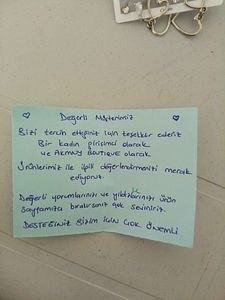 Değerli Müşterimiz
Bizi tercih ettiğiniz için teşekkür ederiz
Bir kadın girişimci olarak
ve AKMAVY BOUTIQUE olarak
Ürünlerimiz ile ilgili değerlendirmenizi merak
ediyoruz.
Değerli yorumlarınızı ve yıldızlarınızı ürün
sayfamıza bırakırsanız çok seviniriz.
DESTEĞİNİZ BİZİM İÇİN ÇOK ÖNEMLİ